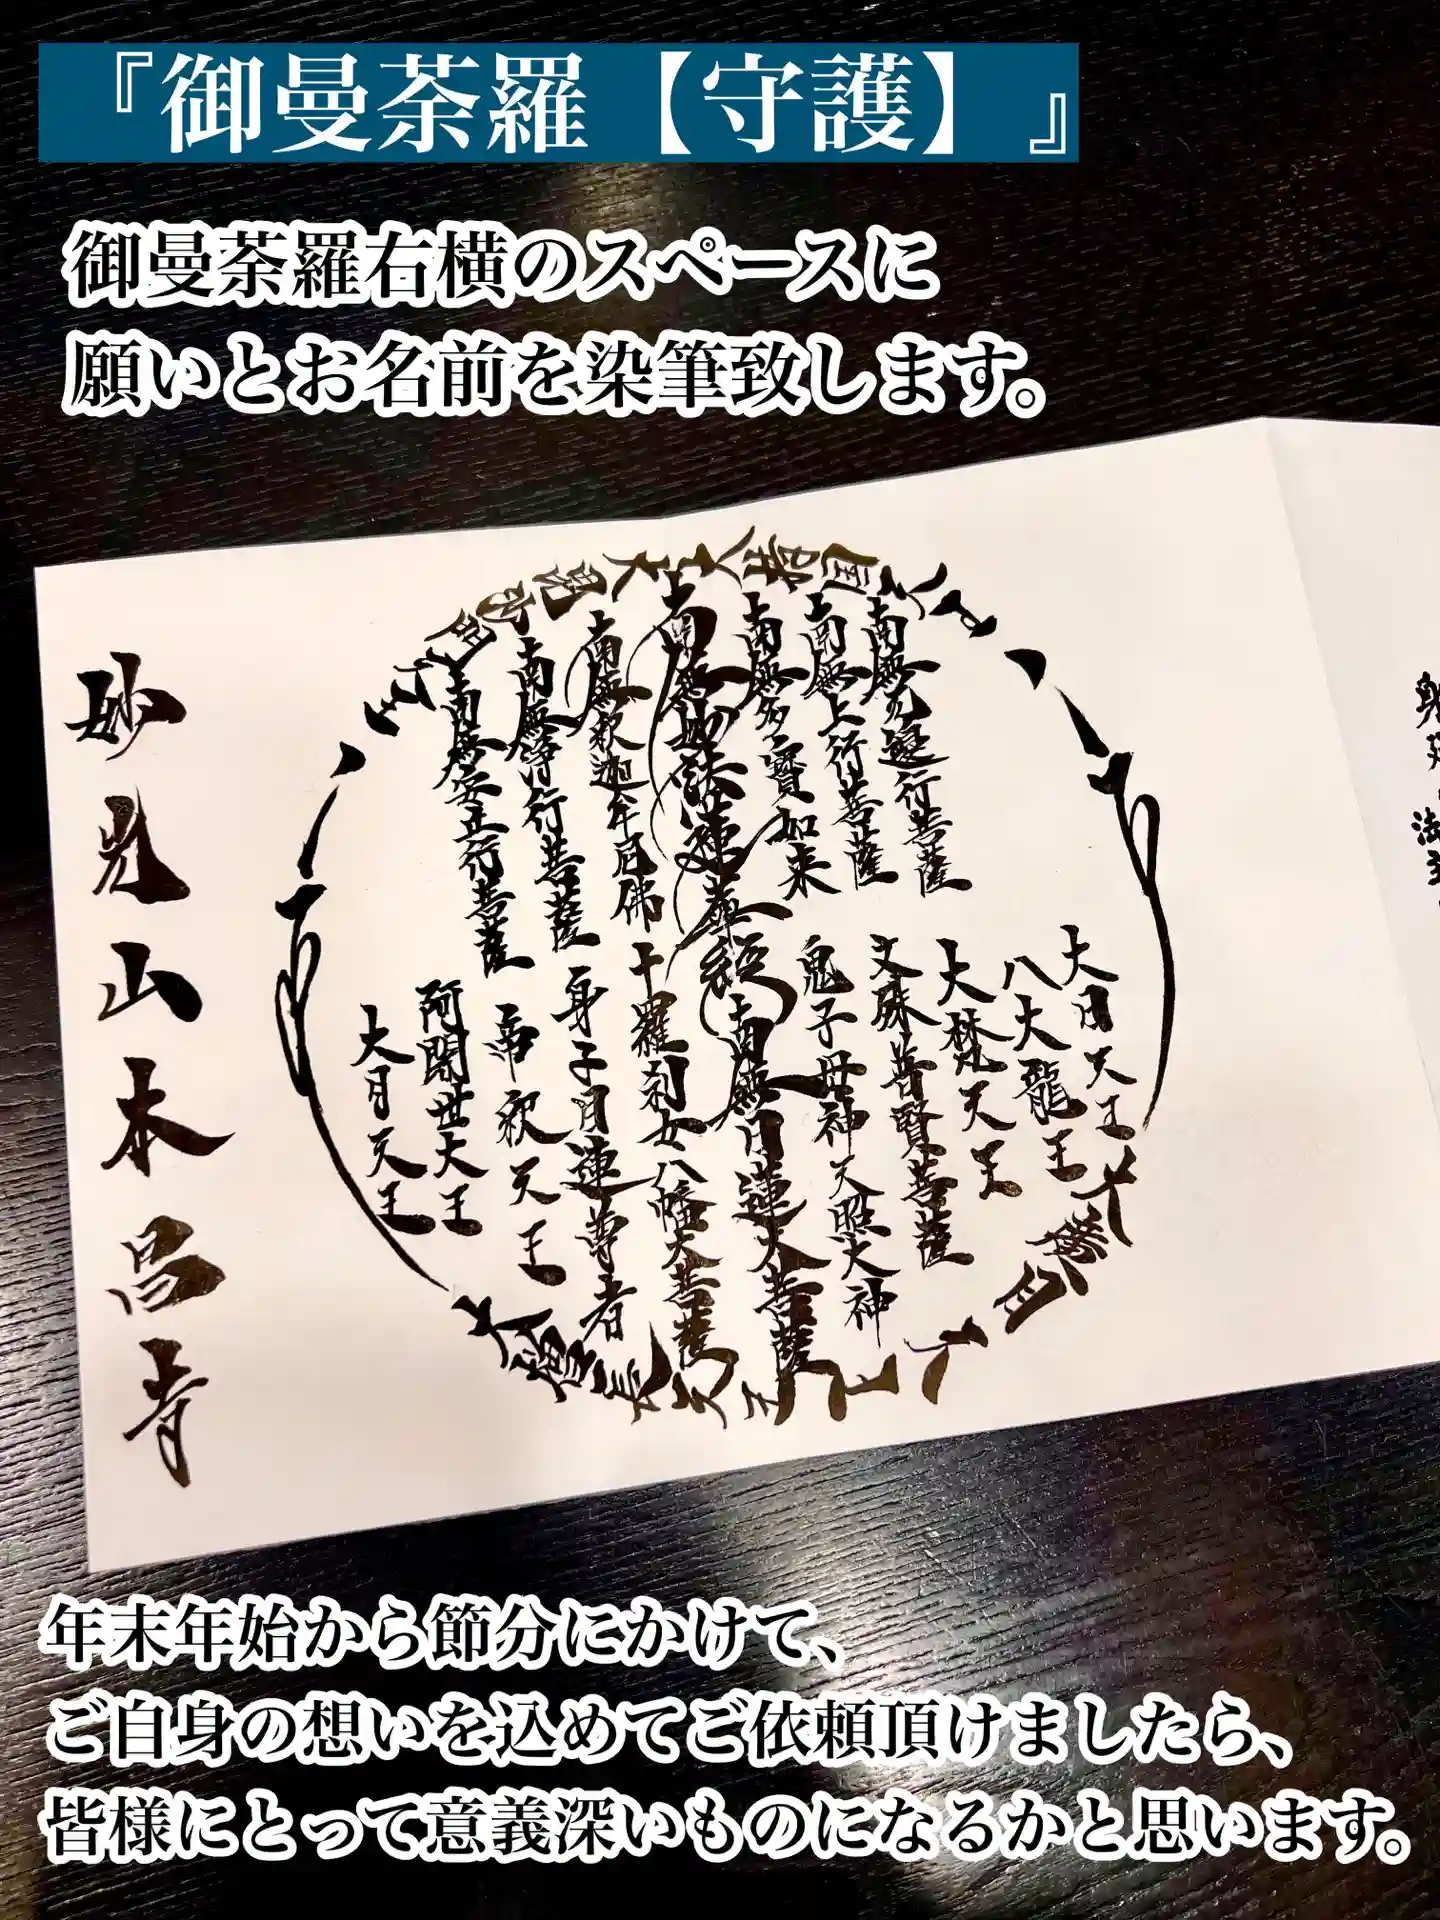 『御曼荼羅【守護】』
御曼荼羅右横のスペースに
願いとお名前を染筆致します。
南無無邊行菩薩
南無上行菩薩
南無多寶如来
南無妙法蓮華経
南無釈迦牟尼佛
南無浄行菩薩
南無安立行菩薩
大日天王
八大龍王
大梵天王
文殊普賢菩薩
鬼子母神天照大神
南無日蓮大菩薩
十羅刹女八幡大菩薩
身子目連尊者
帝釈天王
阿闍世大王
大月天王
妙光山本昌寺
年末年始から節分にかけて、
ご自身の想いを込めてご依頼頂けましたら、
皆様にとって意義深いものになるかと思います。